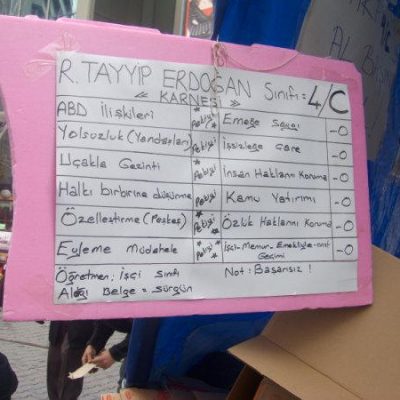 R. TAYYİP ERDOĞAN Sınıfı: 4/C
« KARNESİ »
ABD İlişkileri * Pekiyi * Emeğe Saygı -0
Yolsuzluk (Yandaşları) * Pekiyi İşsizliğe Çare -0
Uçakla Gezinti * Pekiyi İnsan Haklarını Koruma -0
Halkı birbirine düşürme * Pekiyi * Kamu Yatırımı -0
Özelleştirme (Peşkeş) * Pekiyi * Özlük Haklarını Koruma -0
Eyleme Müdahele * Pekiyi * İşçi-Memur-Emekli
Geçimi -0
Öğretmen: İşçi sınıfı Not: Başarısız!
Aldığı Belge = Sürgün
AL